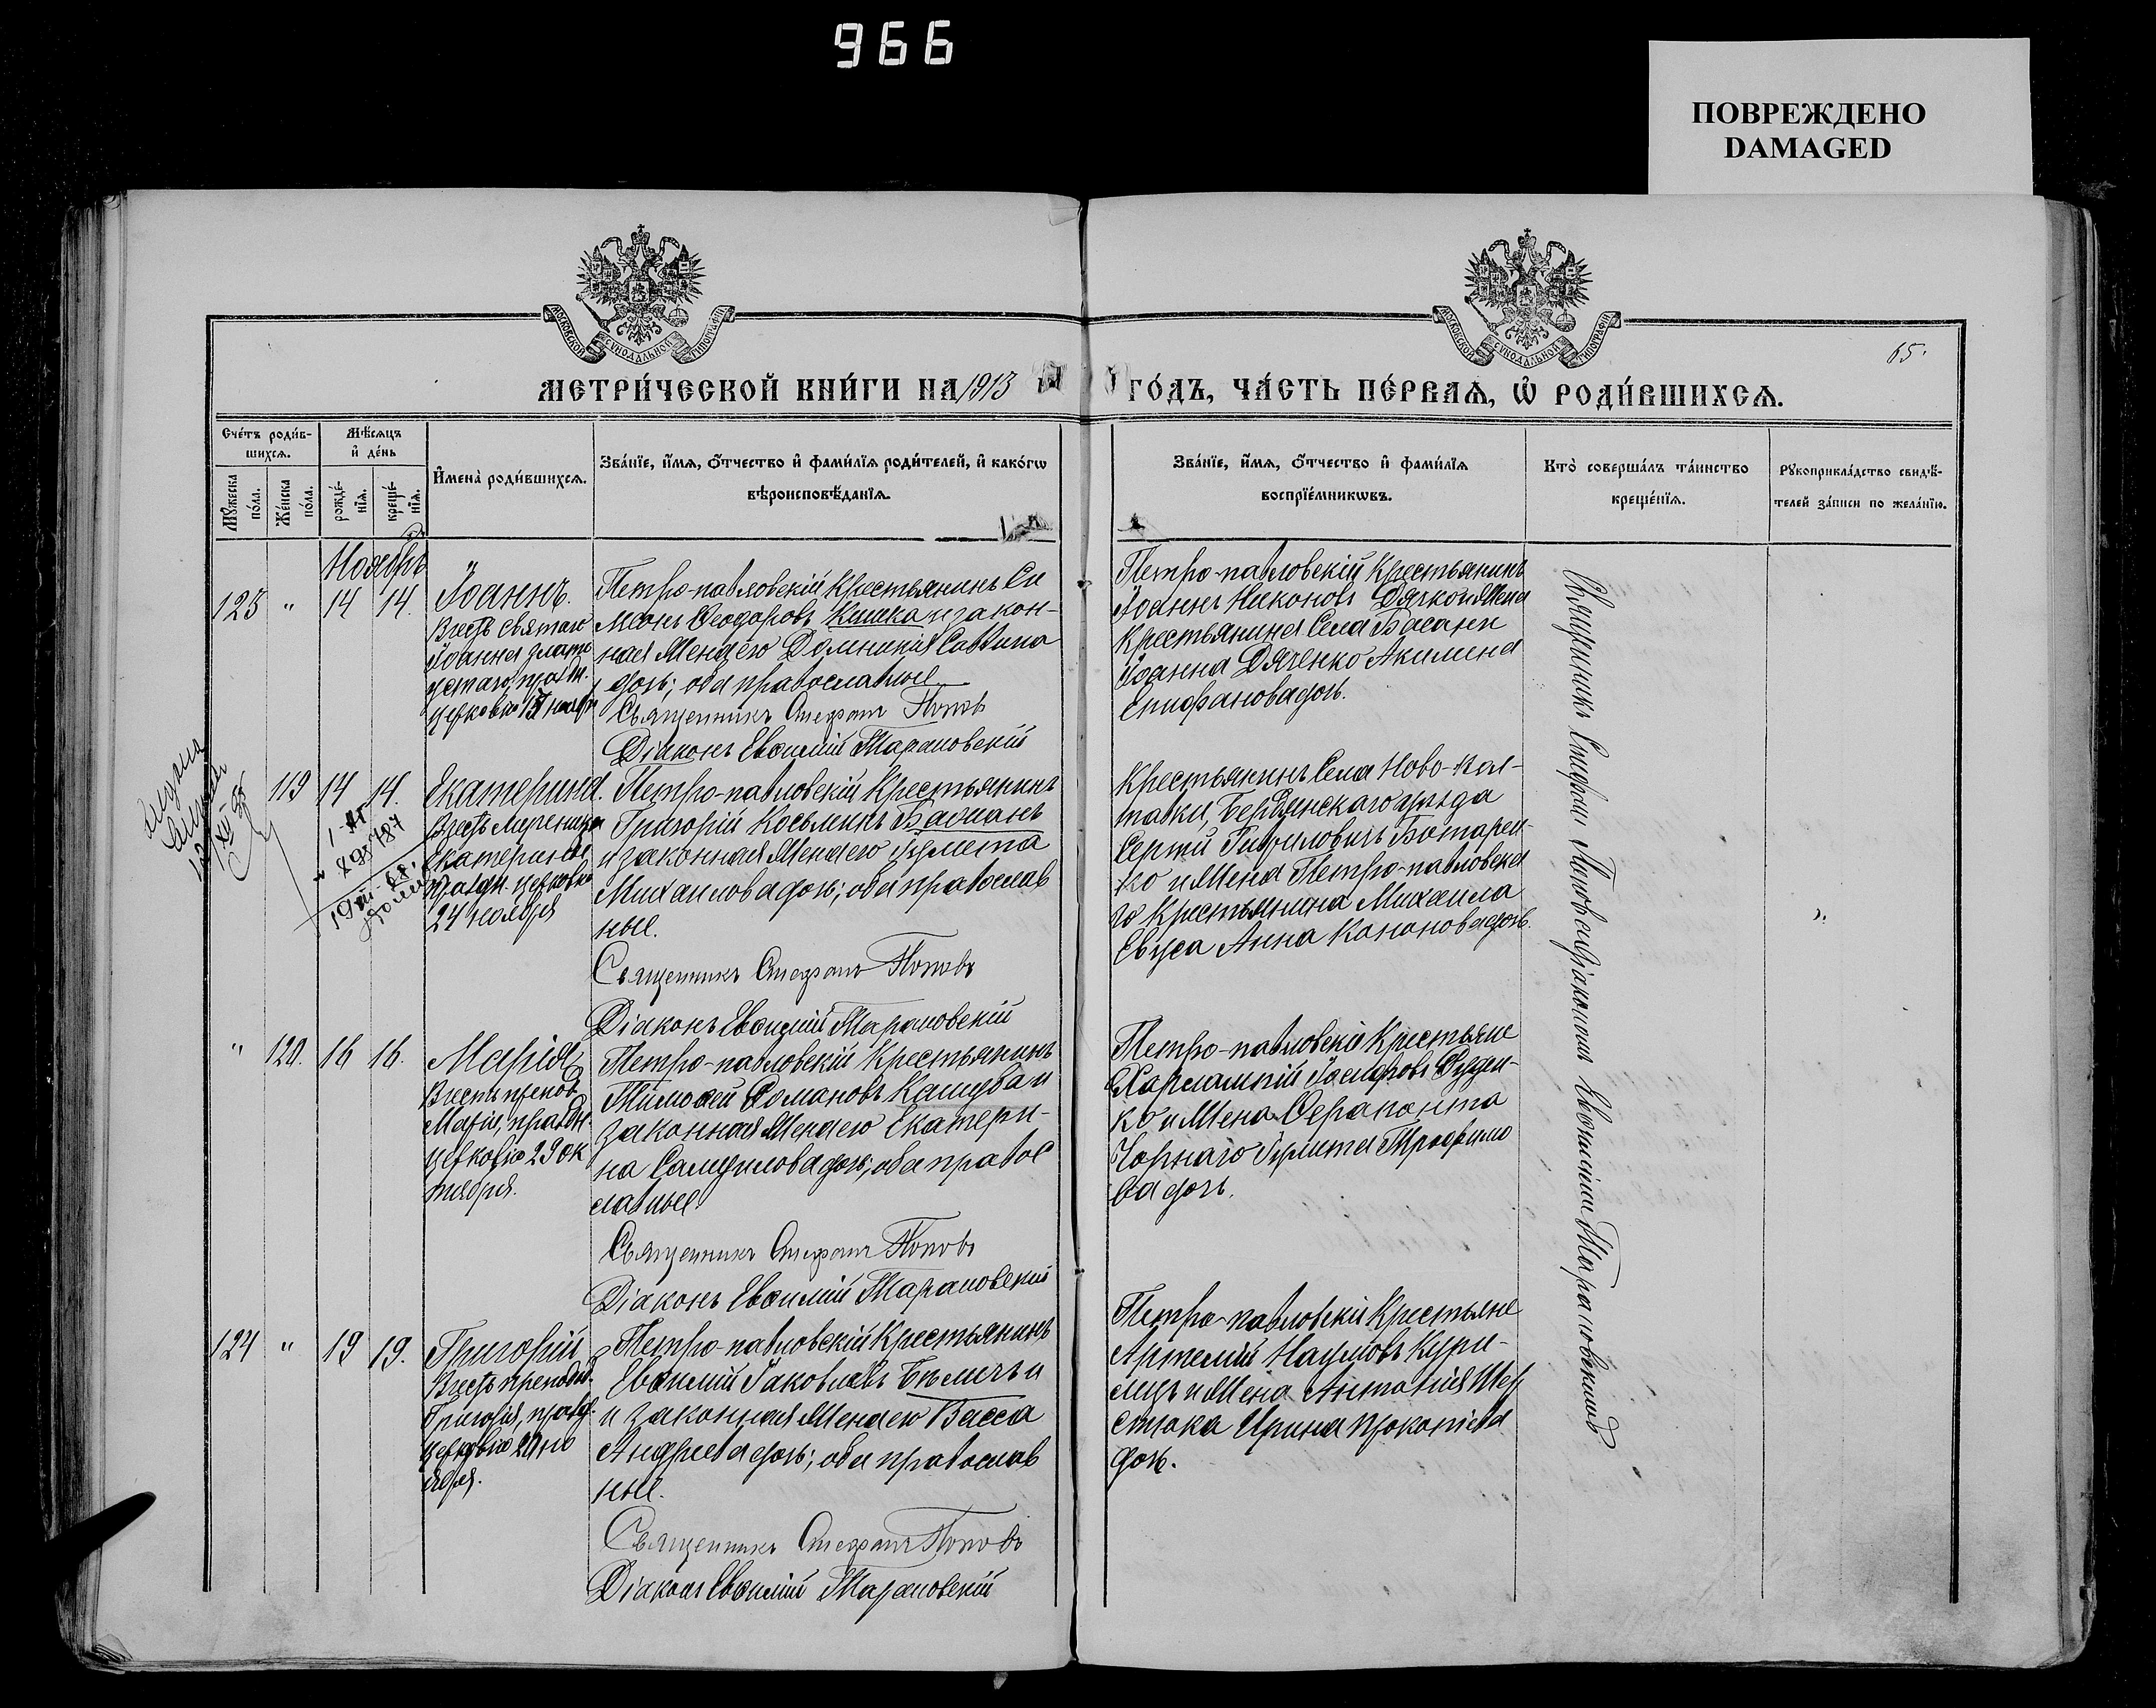 966
ПОВРЕЖДЕНО
DAMAGED
МОСКОВСКОЙ СѴНОДАЛЬНОЙ ТИПОГРАФІИ
МОСКОВСКОЙ СѴНОДАЛЬНОЙ ТИПОГРАФІИ
65.
МЕТРИ́ЧЕСКОЙ КНИ́ГИ НА 1913
ГО́ДЪ, ЧА́СТЬ ПЕ́РВАѦ, Ѡ҆ РОДИ́ВШИХСѦ.
Сче́тъ роди́в-
шихсѧ.
Мꙋ́жеска по́ла.
Же́нска по́ла.
Мѣ́сѧцъ
и҆ де́нь
рожде́-
нїѧ.
креще́-
нїѧ.
И҆мена̀ роди́вшихсѧ.
Зва́нїе, и҆́мѧ, ѻ҆́тчество и҆ фами́лїѧ роди́телей, и҆ како́гѡ
вѣроисповѣ́данїѧ.
Зва́нїе, и҆́мѧ, ѻ҆́тчество и҆ фами́лїѧ
воспрїе́мникѡвъ.
Кто̀ соверша́лъ та́инство
креще́нїѧ.
Рꙋкоприкла́дство свидѣ́-
телей за́писи по жела́нїю.
Ноябрь
123 " 14 14.
Іоаннъ.
Въ честь святаго
Іоанна злато
устаго, празд.
церковію 13 ноября
Петро-павловскій Крестьянинъ Си
меонъ Ѳеодоровъ Кишка и закон-
ная жена его Домникія Саввина
дочь; оба православные
Священникъ Стефанъ Поповъ
Діаконъ Евѳимій Тарановскій
Петро-павловскій Крестьянинъ
Іоаннъ Никоновъ Дячко и жена
Крестьянина Села Басани
Іоанна Дяченко Акилина
Епифанова дочь.
119 14 14.
Екатерина.
Въ честь мученицы
Екатерины,
праздн. церковію
24 ноября
Петро-павловскій Крестьянинъ
Григорій Косьминъ Баоманъ
и законная жена его Іулита
Михаилова дочь; оба православ
ные.
Священникъ Стефанъ Поповъ
Діаконъ Евѳимій Тарановскій
Крестьянинъ Села Ново-пол-
тавки, Бердянскаго уѣзда
Сергій Гавриловичъ Ботарен-
ко и жена Петро-павловска
го Крестьянина Михаила
Евуса Анна Кононова дочь.
" 120. 16 16.
Марія
Въ честь препод.
Маріи, праздн.
церковію 29 ок
тября.
Петро-павловскій Крестьянинъ
Тимоѳей Романовъ Кашуба и
законная жена его Екатери-
на Самуилова дочь; оба правос
лавные
Священникъ Стефанъ Поповъ
Діаконъ Евѳимій Тарановскій
Петро-павловскіе Крестьяне
Харлампій Іосифовъ Дудни-
ко и жена Ѳерапонта
Чорнаго Іулита Трофимо
ва дочь.
124 " 19 19.
Григорій
Въ честь преподоб.
Григорія, празд.
церковію 20 но
ября.
Петро-павловскій Крестьянинъ
Евѳимій Іаковлевъ Бѣличъ и
и законная жена его Васса
Андреева дочь; оба православ
ные.
Священникъ Стефанъ Поповъ
Діаконъ Евѳимій Тарановскій
Петро-павловскіе Крестьяне
Артемій Наумовъ Кури-
лецъ и жена Антонія Шер
стюка Ирина Прокопіева
дочь.
Священникъ Стефанъ Поповъ съ діакономъ Евѳиміемъ Тарановскимъ